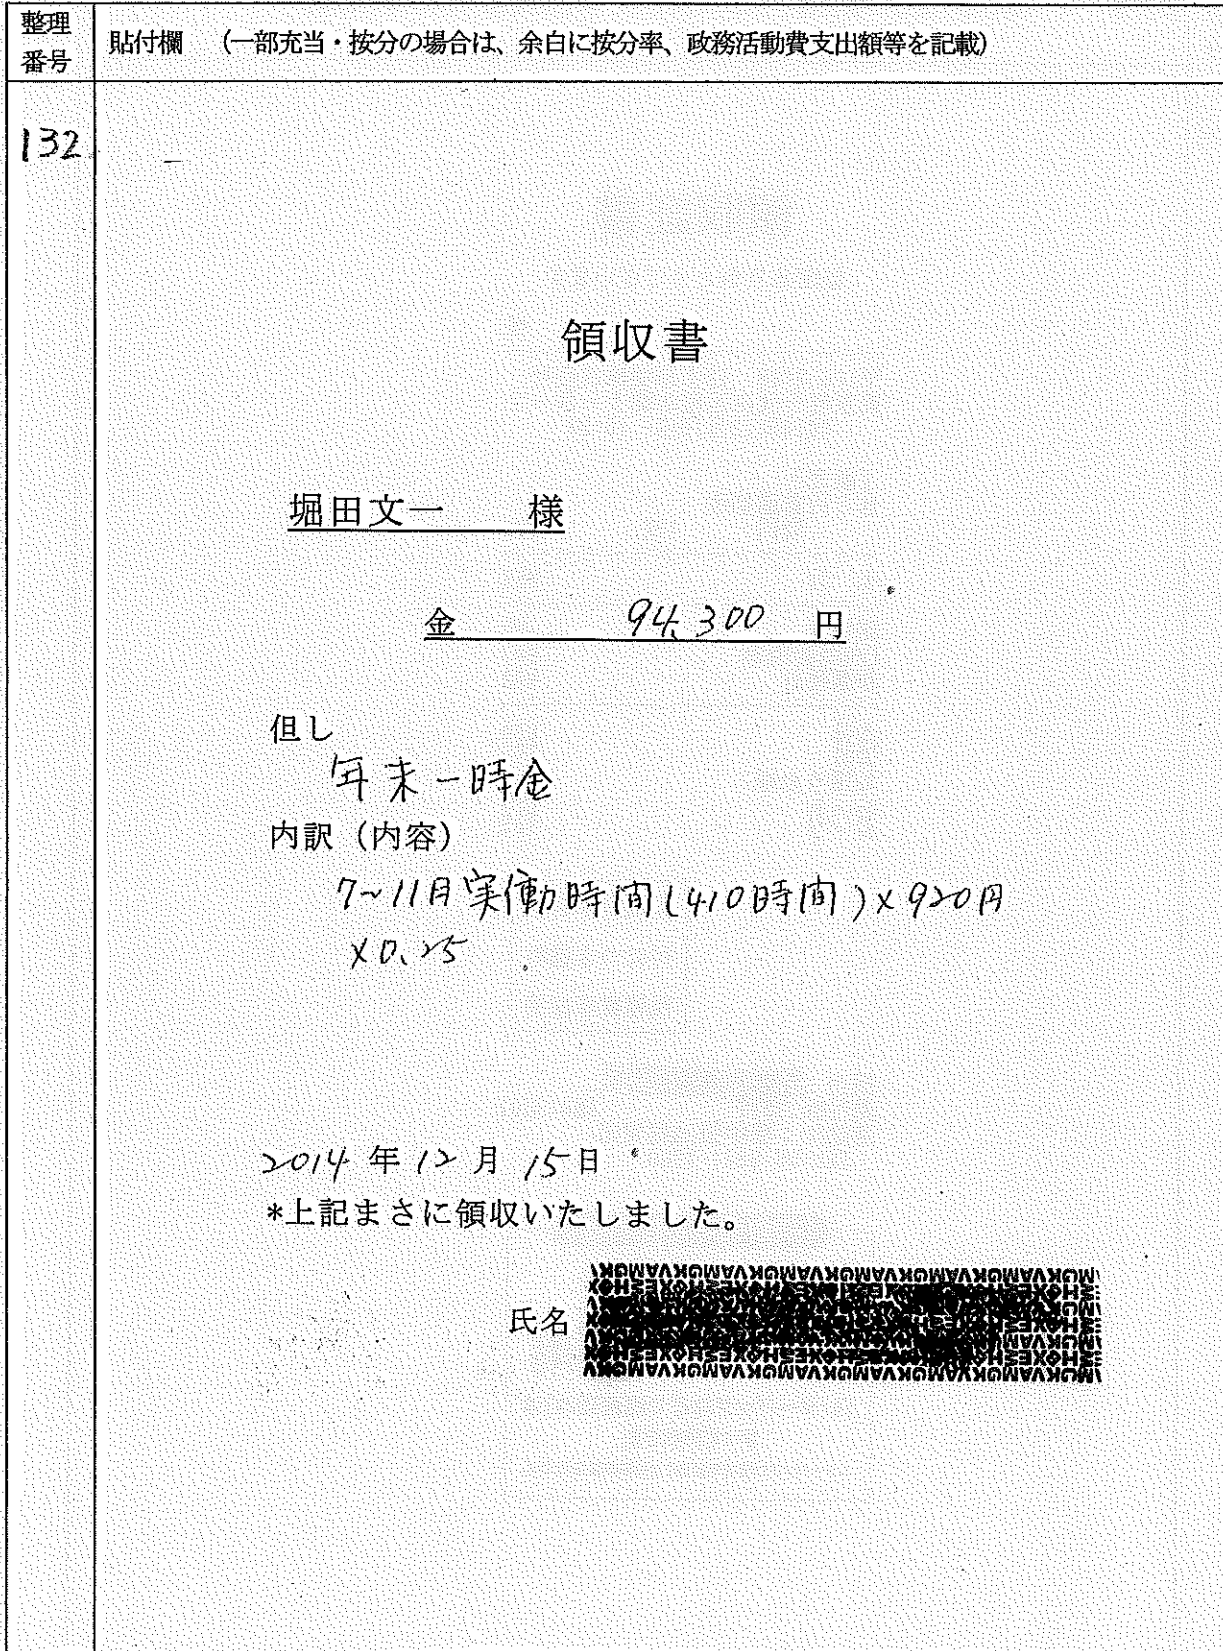 整理
番号
貼付欄 (一部充当・按分の場合は、余白に按分率、政務活動費支出額等を記載)
132
領収書
堀田文一 様
金 94,300 円
但し
年末一時金
内訳 (内容)
7~11月実働時間(410時間)×920円
×0.25
2014年12月15日
*上記まさに領収いたしました。
氏名